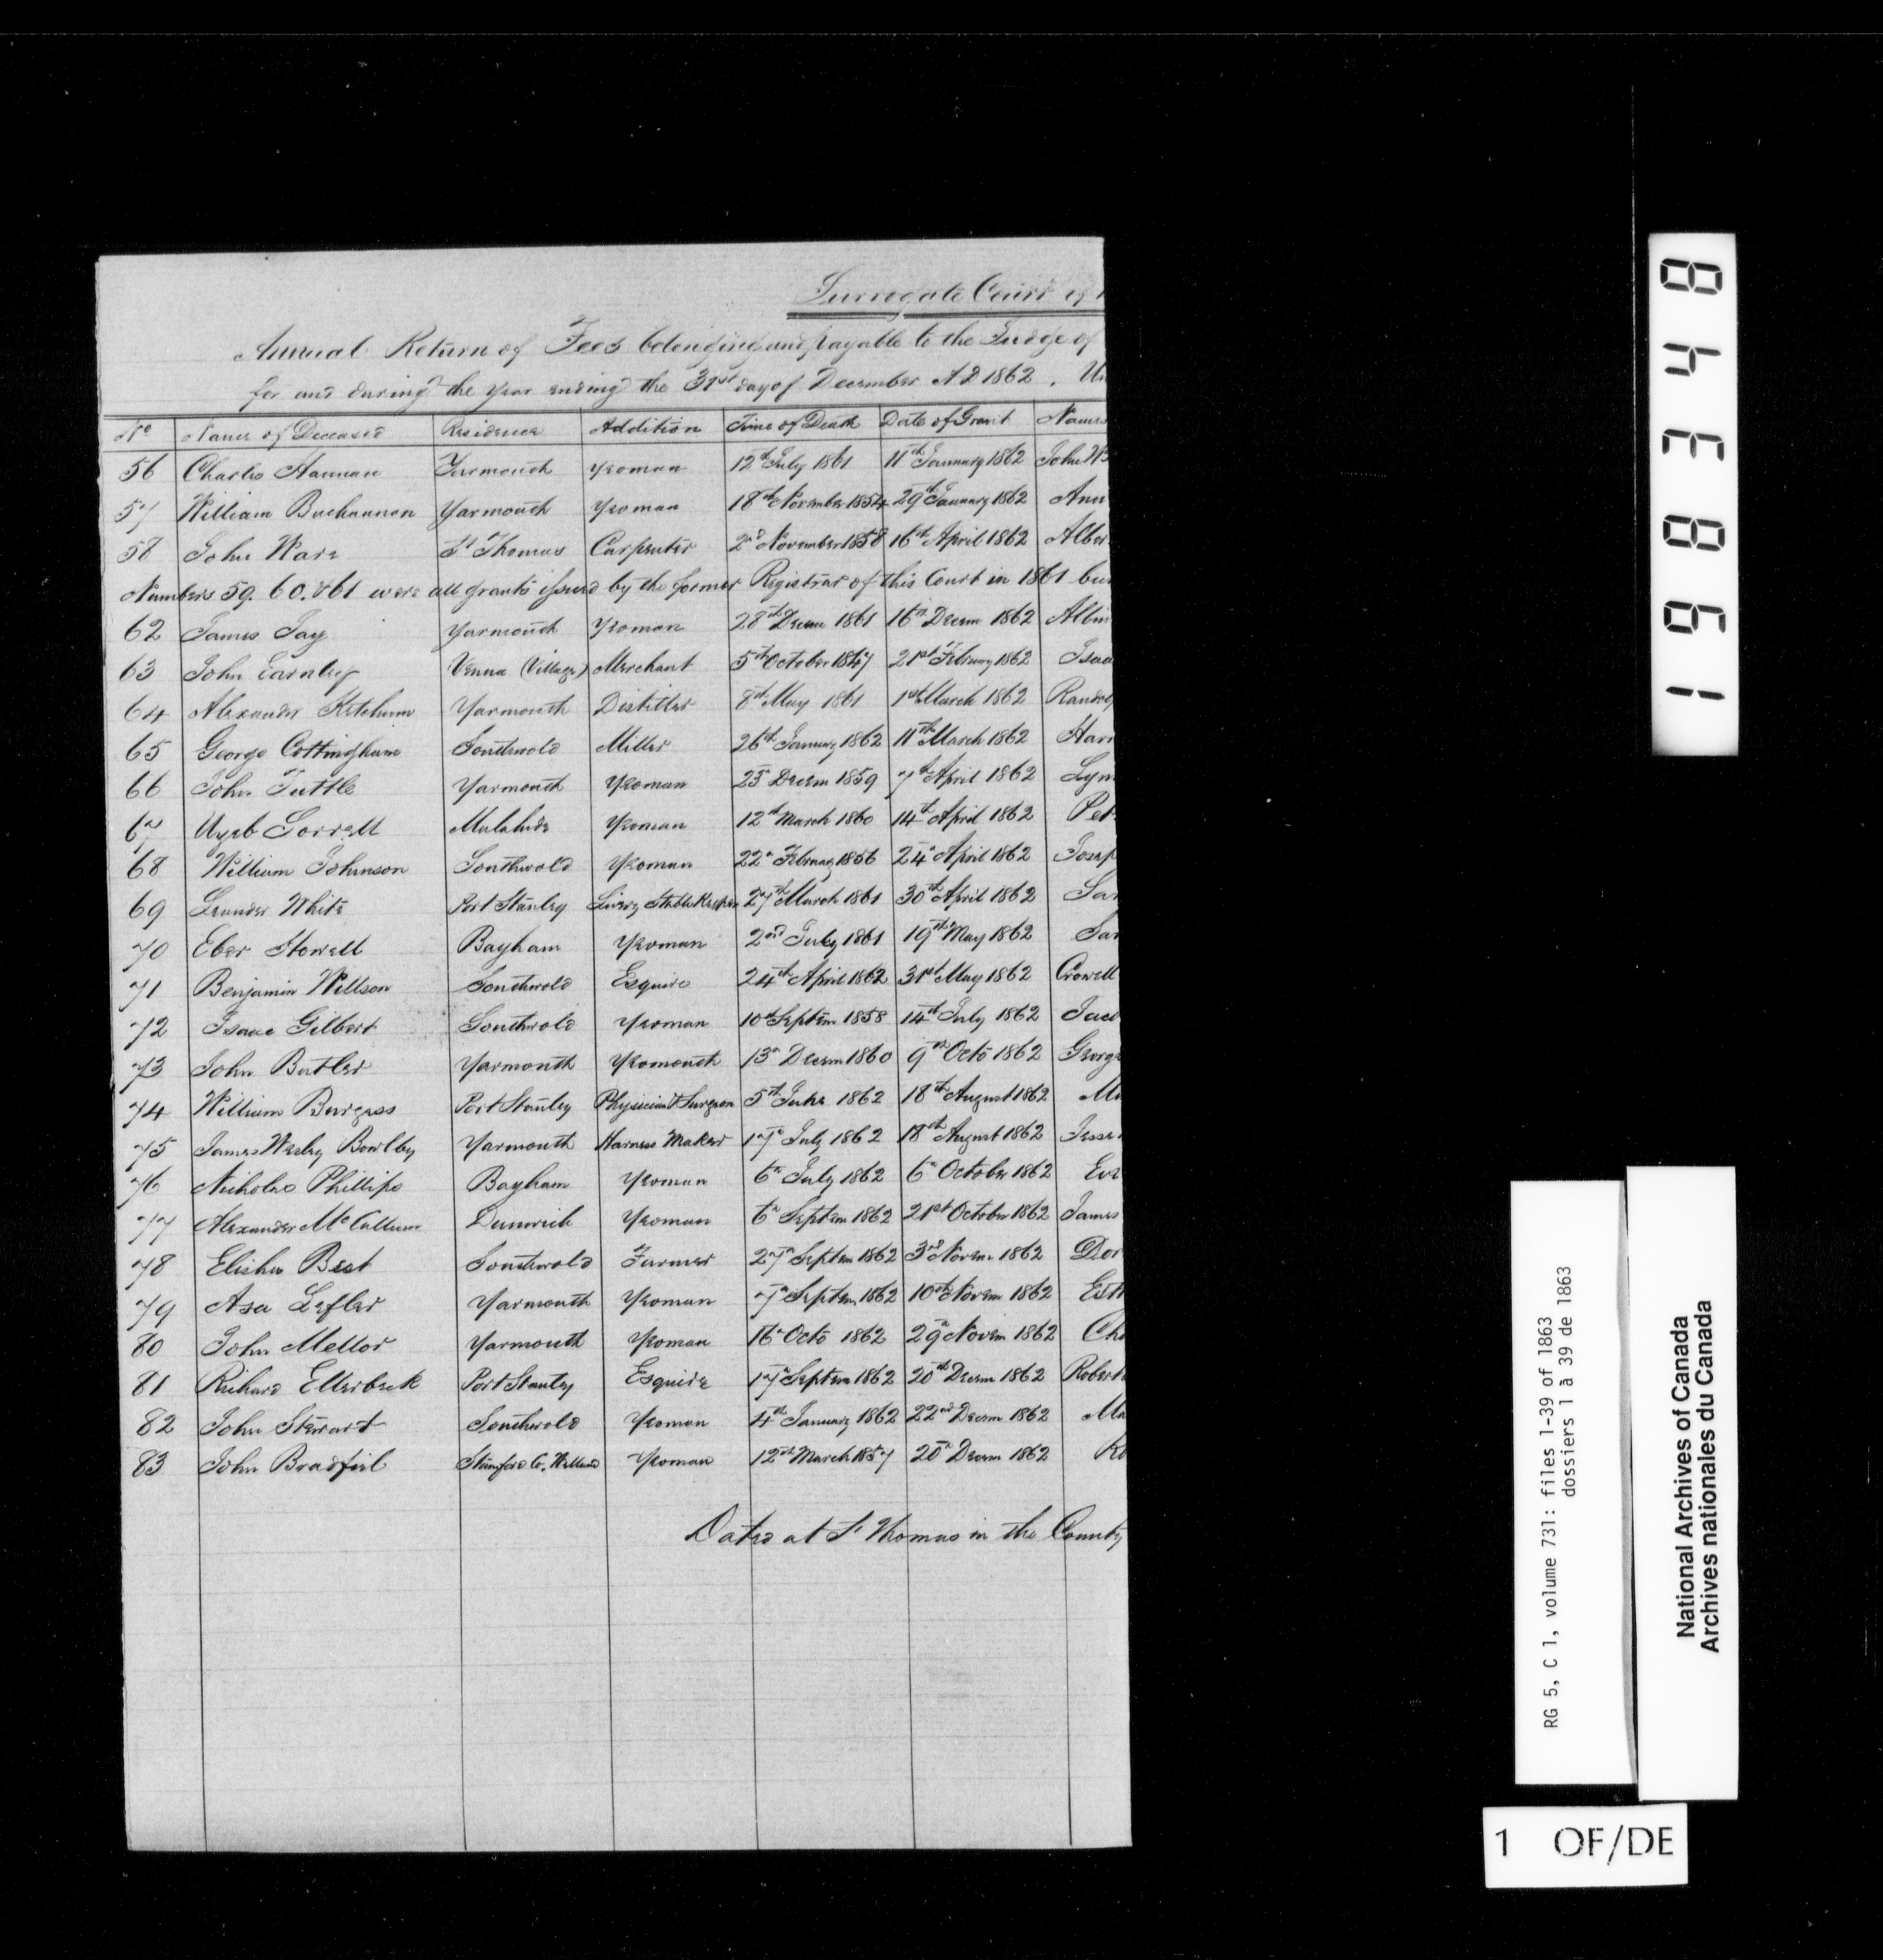 Surrogate Court of
Annual Return of Fees belonging and payable to the Judge of
for and during the year ending the 31st day of December A D 1862. Un
No Names of Deceased Residence Addition Time of Death Date of Grant Names
56 Charles Hannan Yarmouth Yeoman 12th July 1861 11th January 1862 John W
57 William Buchannan Yarmouth Yeoman 18th November 1854 29th January 1862 Ann
58 John Ware St Thomas Carpenter 2nd November 1858 16th April 1862 Alber
Numbers 59. 60. & 61 were all grants issued by the former Registrar of this Court in 1861 but
62 James Jay Yarmouth Yeoman 28th Decem 1861 16th Decem 1862 Albin
63 John Earnley Vienna (Village) Merchant 5th October 1847 21st February 1862 Isaa
64 Alexander Ketchum Yarmouth Distiller 8th May 1861 1st March 1862 Randol
65 George Cottingham Southwold Miller 26th January 1862 11th March 1862 Harr
66 John Tuttle Yarmouth Yeoman 25th Decem 1859 7th April 1862 Lym
67 Sorrell Malahide Yeoman 12th March 1860 14th April 1862 Pet
68 William Johnson Southwold Yeoman 22n February 1856 24th April 1862 Josep
69 Leander White Port Stanley Livery Stable Keeper 27th March 1861 30th April 1862 Sar
70 Eber Howell Bayham Yeoman 2nd July 1861 19th May 1862 Sar
71 Benjamin Willson Southwold Esquire 24th April 1862 31st May 1862 Crowell
72 Isaac Gilbert Southwold Yeoman 10th Septem 1858 14th July 1862 Jaco
73 John Butler Yarmouth Yeomouth 13th Decem 1860 9th Octo 1862 George
74 William Burgess Port Stanley Physician & Surgeon 5th June 1862 18th August 1862 Ma
75 James Wesley Bowlby Yarmouth Harness Maker 17th July 1862 18th August 1862 Jesse
76 Nicholas Phillips Bayham Yeoman 6th July 1862 6th October 1862 Eve
77 Alexander McCallum Dunwich Yeoman 6th Septem 1862 21st October 1862 James
78 Elisha Best Southwold Farmer 27th Septem 1862 3rd Novem 1862 Dor
79 Asa Lefler Yarmouth Yeoman 7th Septem 1862 10th Novem 1862 Esth
80 John Mellor Yarmouth Yeoman 16th Octo 1862 29th Novem 1862 Cha
81 Richard Ellerbeck Port Stanley Esquire 17th Septem 1862 20th Decem 1862 Robert
82 John Stewart Southwold Yeoman 4th January 1862 22nd Decem 1862 Ma
83 John Bradfiel Stamford Co. Welland Yeoman 12th March 1857 20th Decem 1862 Ro
Dated at St Thomas in the County
198348
RG 5, C 1, volume 731: files 1-39 of 1863
dossiers 1 à 39 de 1863
National Archives of Canada
Archives nationales du Canada
1 OF/DE